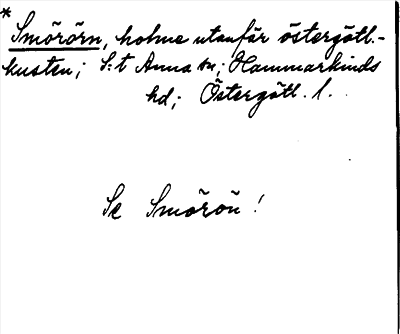 *
Smörörn, holme utanför östergötl.-
kusten; S:t Anna sn; Hammarkinds
hd; Östergötl. l.
Se Smörön!